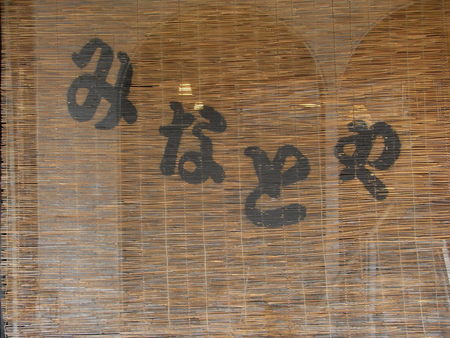 みなとや